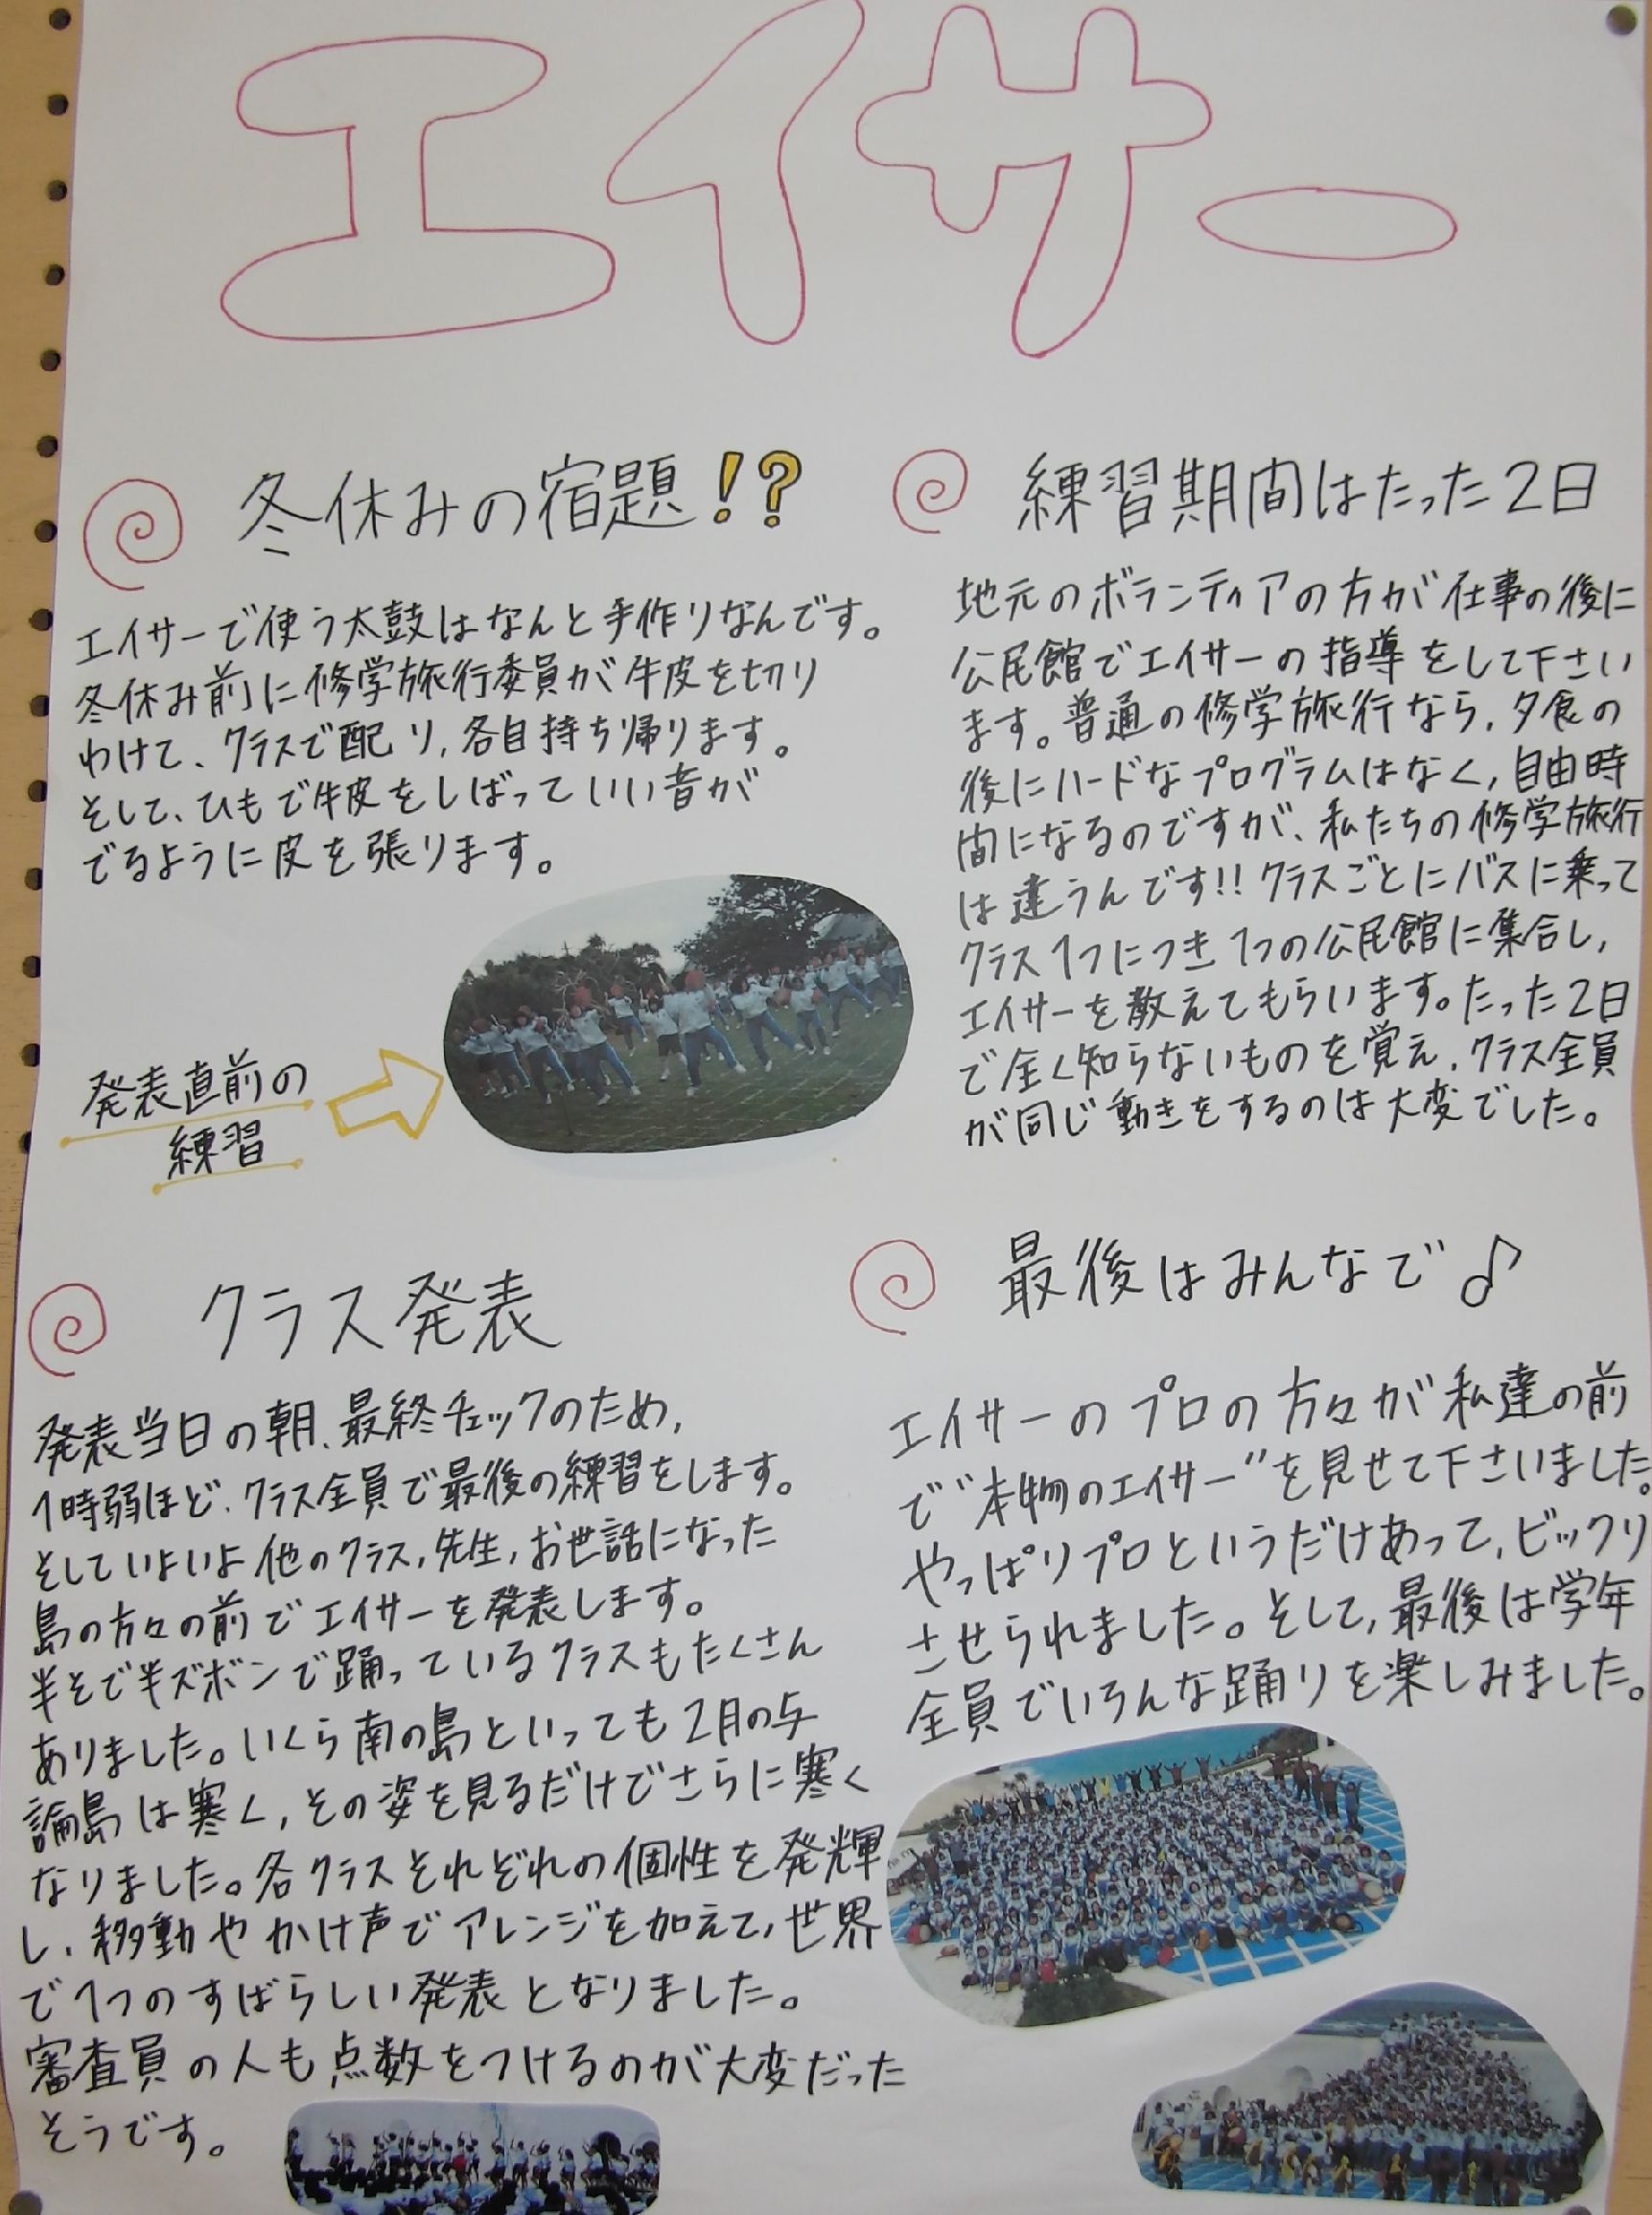 エイサー
冬休みの宿題!?
エイサーで使う太鼓はなんと手作りなんです。
冬休み前に修学旅行委員が牛皮を切り
わけて、クラスで配り,各自持ち帰ります。
そして、ひもで牛皮をしばっていい音が
でるように皮を張ります。
発表直前の
練習
練習期間はたった2日
地元のボランティアの方が仕事の後に
公民館でエイサーの指導をして下さい
ます。普通の修学旅行なら,夕食の
後にハードなプログラムはなく,自由時
間になるのですが、私たちの修学旅行
は違うんです!!クラスごとにバスに乗って
クラス1つにつき1つの公民館に集合し,
エイサーを教えてもらいます。たった2日
で全く知らないものを覚え,クラス全員
が同じ動きをするのは大変でした。
クラス発表
発表当日の朝、最終チェックのため,
1時弱ほど、クラス全員で最後の練習をします。
そしていよいよ他のクラス,先生,お世話になった
島の方々の前でエイサーを発表します。
半そで半ズボンで踊っているクラスもたくさん
ありました。いくら南の島といっても2月の与
論島は寒く,その姿を見るだけでさらに寒く
なりました。各クラスそれぞれの個性を発輝
し、移動やかけ声でアレンジを加えて,世界
で1つのすばらしい発表となりました。
審査員の人も点数をつけるのが大変だった
そうです。
最後はみんなで♪
エイサーのプロの方々が私達の前
で“本物のエイサー”を見せて下さいました。
やっぱりプロというだけあって,ビックリ
させられました。そして,最後は学年
全員でいろんな踊りを楽しみました。